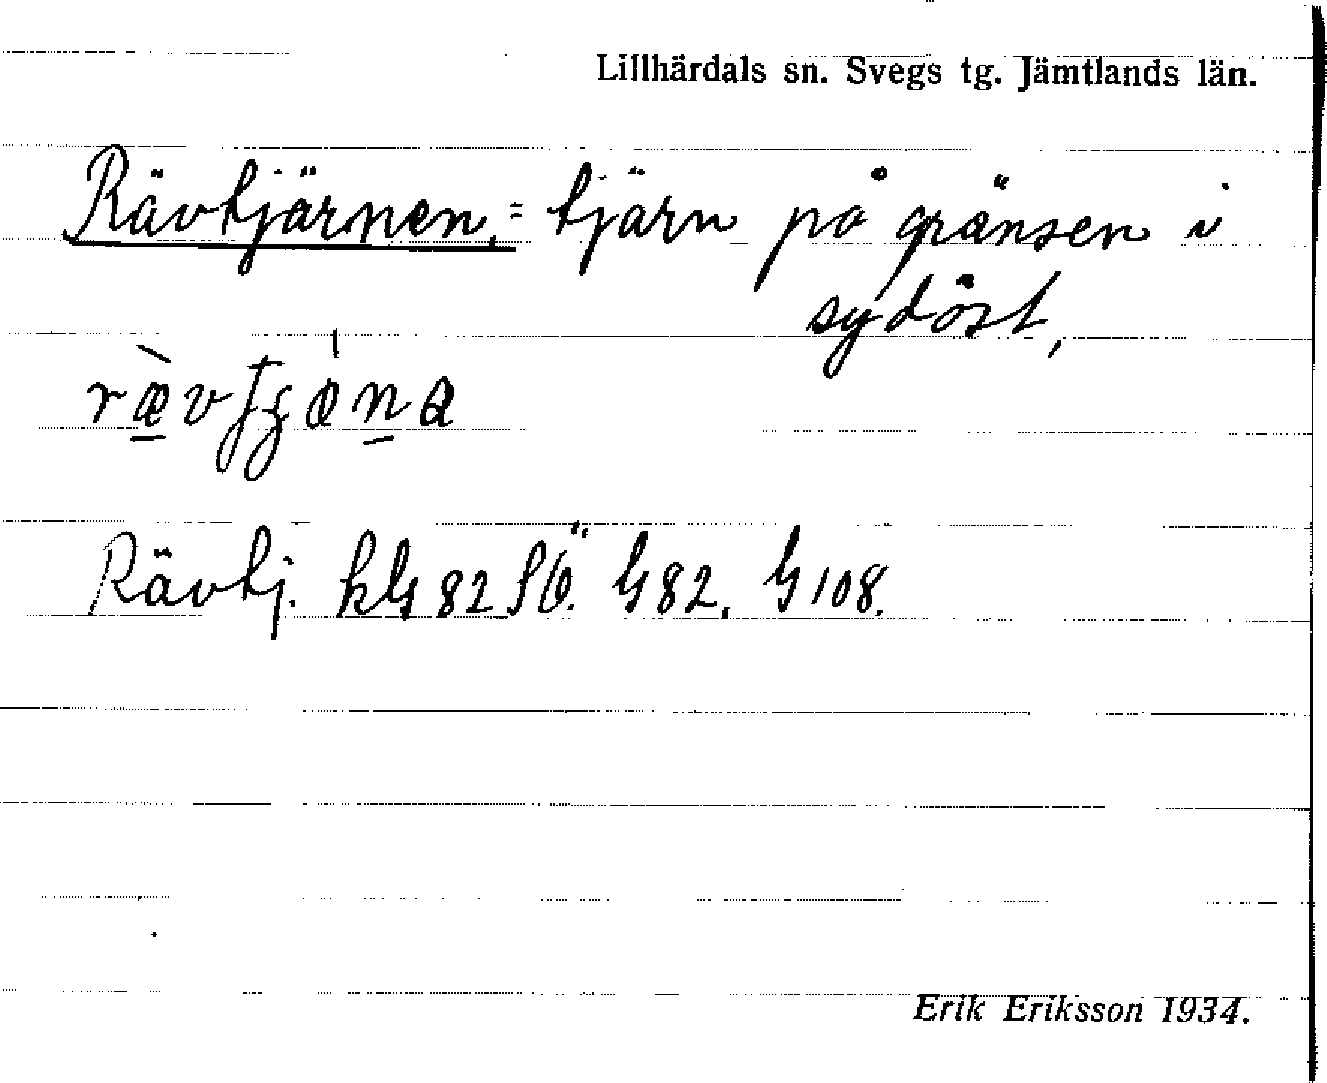 Lillhärdals sn. Svegs tg. Jämtlands län.
Rävtjärnen, = tjärn på gränsen i
sydöst,
Rävtj. kG 82 SÖ. G 82. G 108.
Erik Eriksson 1934.